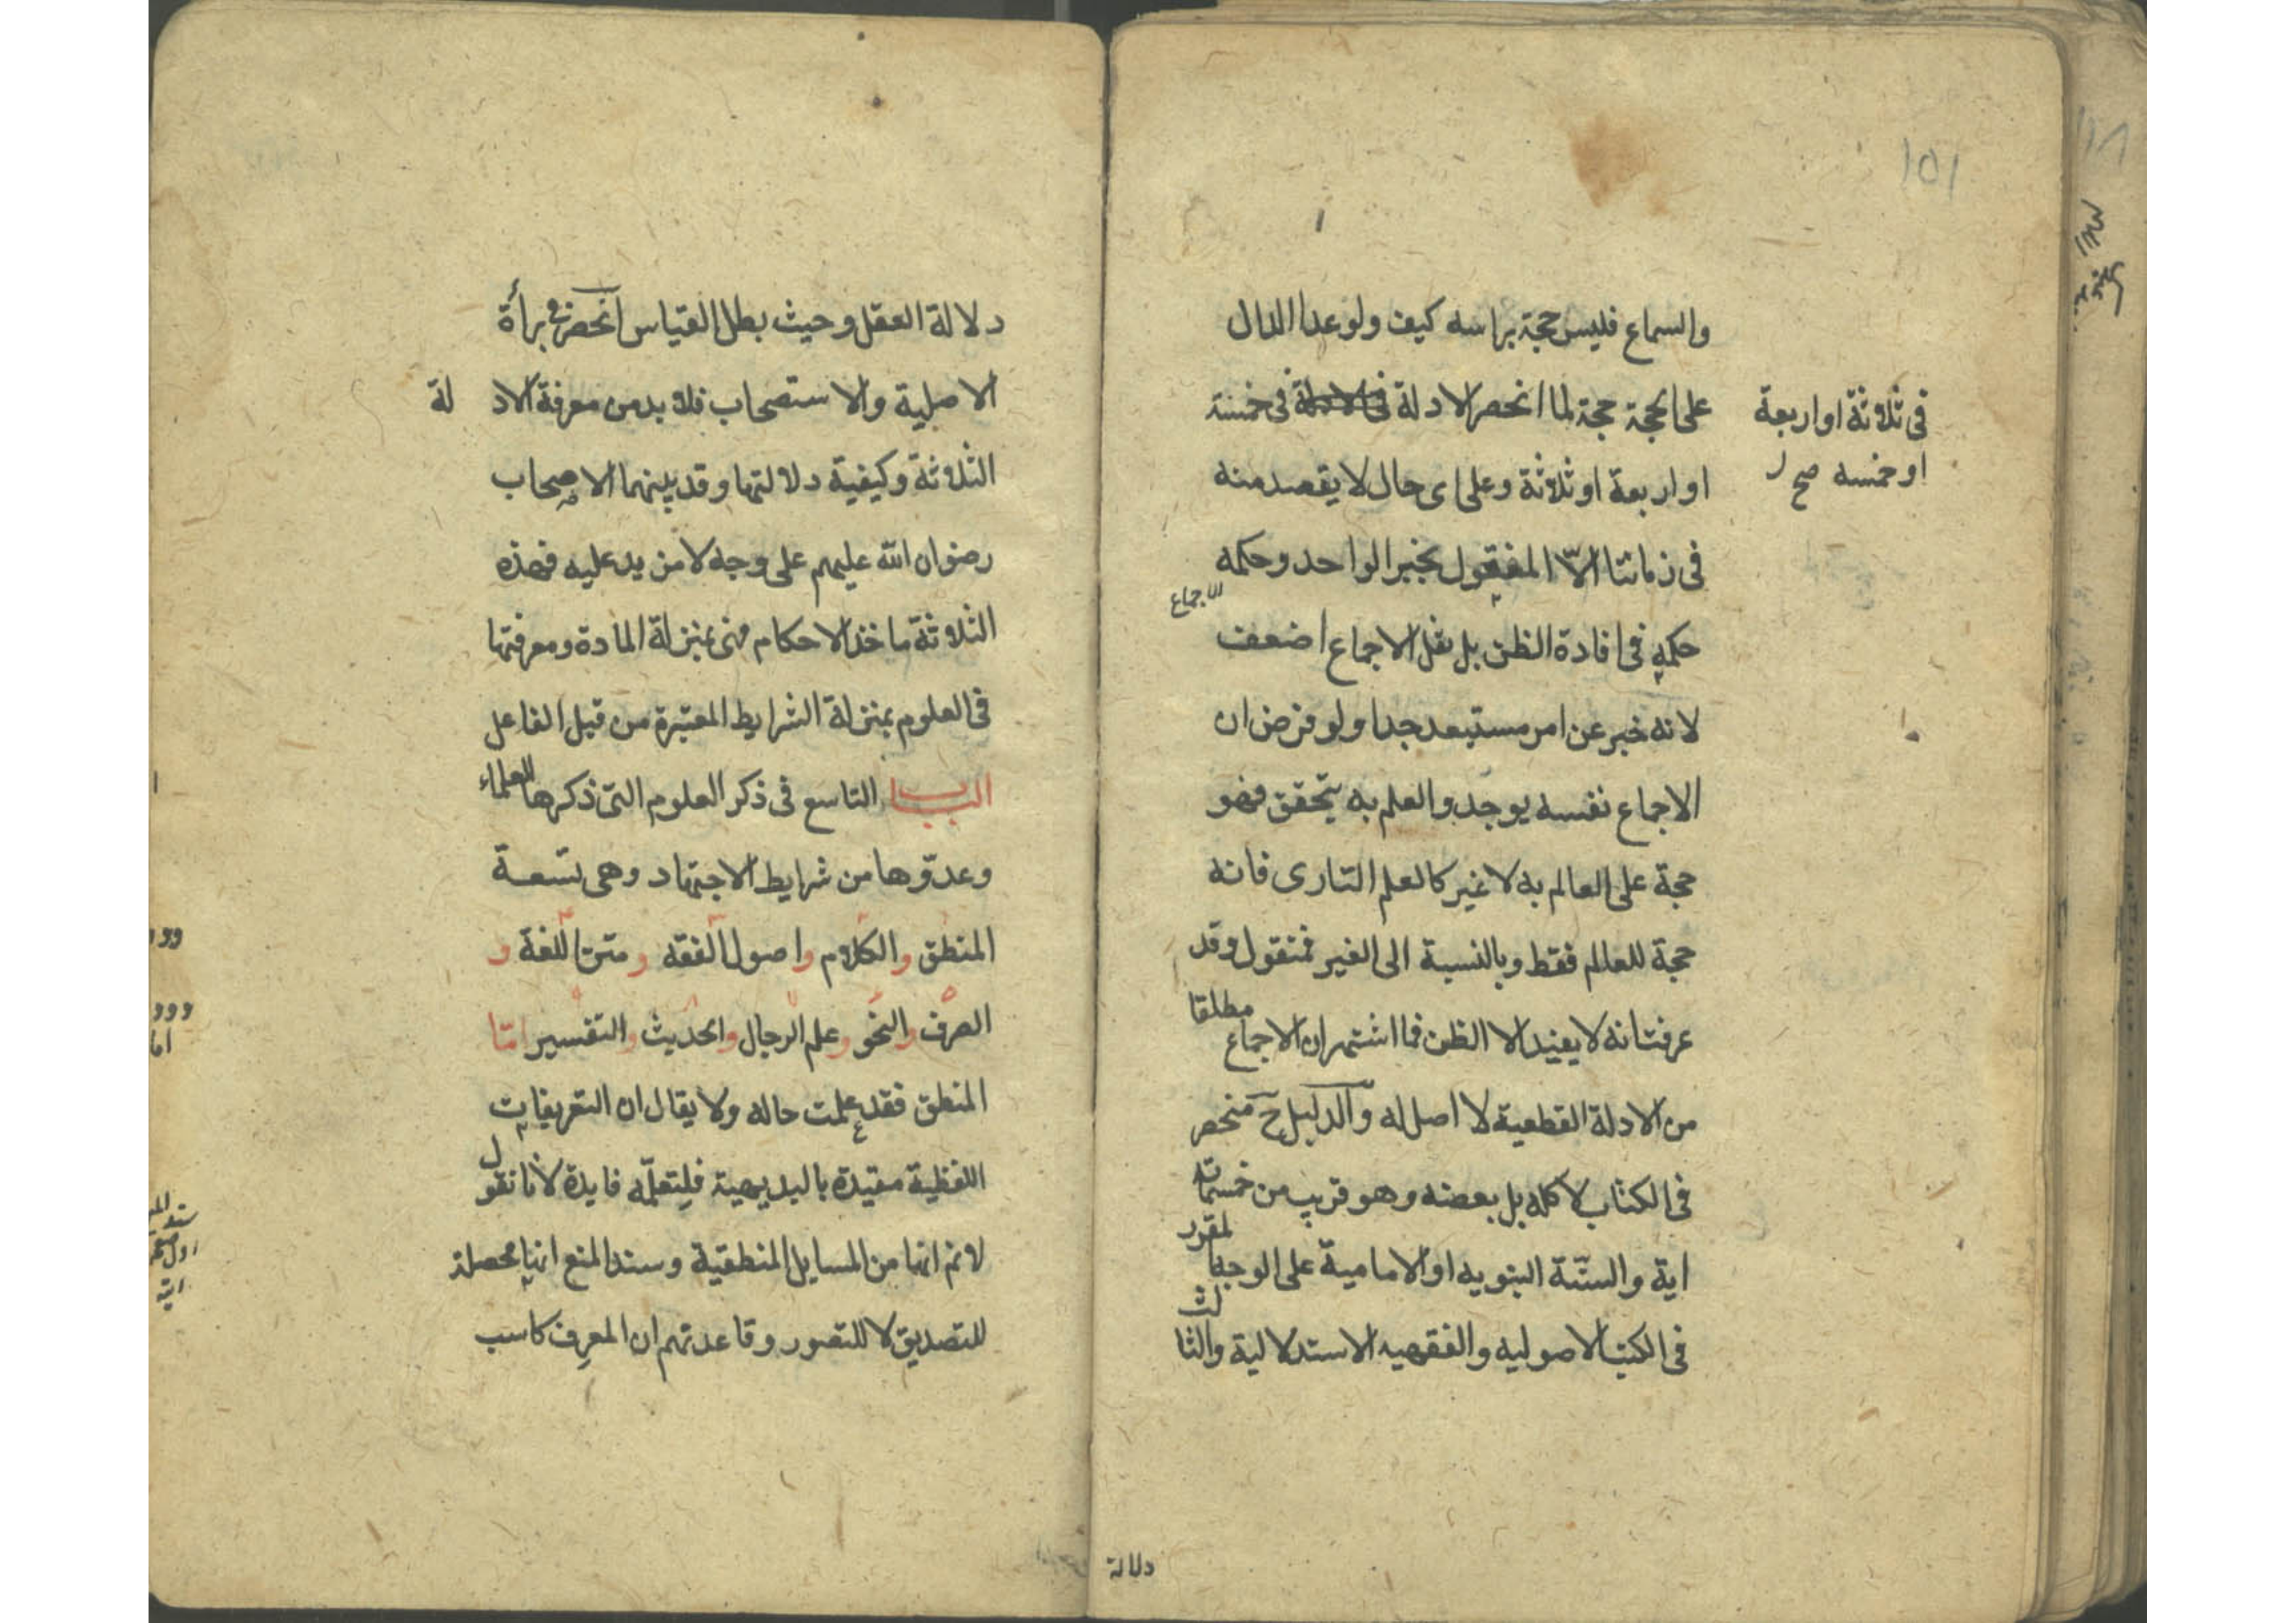 ١٥١
والسماع فليس حجة براسه كيف ولو عدا الدال
على الحجة حجة لما انحصر الادلة فى الادلة فى خمسة
فى ثلاثة او اربعة
او خمسه صح
او اربعة او ثلاثة وعلى اى حال لا يقصد منه
فى زماننا الّا المنقول بخبر الواحد وحكمه
حكمه فى افادة الظن بل نقل الاجماع اضعف
الاجماع
لانه خبر عن امر مستبعد جدا ولو فرض ان
الاجماع نفسه يوجد والعلم به يتحقق فهو
حجة على العالم به لا غير كالعلم التارى فانه
حجة للعالم فقط وبالنسبة الى الغير فمنقول وقد
عرفت انه لا يفيد الا الظن فما اشتهر ان الاجماع مطلقا
من الادلة القطعية لا اصل له والدليل ح منحصر
فى الكتاب لا كله بل بعضه وهو قريب من خمسماة
اية والسنّة النبويه او الامامية على الوجه المقرر
فى الكتب الاصوليه والفقهيه الاستدلالية والثالث
دلالة
دلالة العقل وحيث بطل القياس انحصر فى برأة
الاصلية والاستصحاب فلا بد من معرفة الادلة
الثلاثة وكيفية دلالتها وقد بينهما الاصحاب
رضوان الله عليهم على وجه لا مزيد عليه فهذه
الثلاثة ماخذ الاحكام فهى بمنزلة المادة ومعرفتها
فى العلوم بمنزلة الشرايط المعتبرة من قبل الفاعل
البــاب التاسع فى ذكر العلوم التى ذكرها العلماء
وعدّوها من شرايط الاجتهاد وهى تسعة
المنطق والكلام واصول الفقه ومتن اللغة و
الصرف والنحو وعلم الرجال والحديث والتفسير امّا
المنطق فقد علمت حاله ولا يقال ان التعريفات
اللفظية مقيدة بالبديهية فلتعلّمه فايدة لانا نقول
لانم انها من المسايل المنطقية وسند المنع انها محصلة
للتصديق لا للتصور وقاعدتهم ان المعرف كاسب